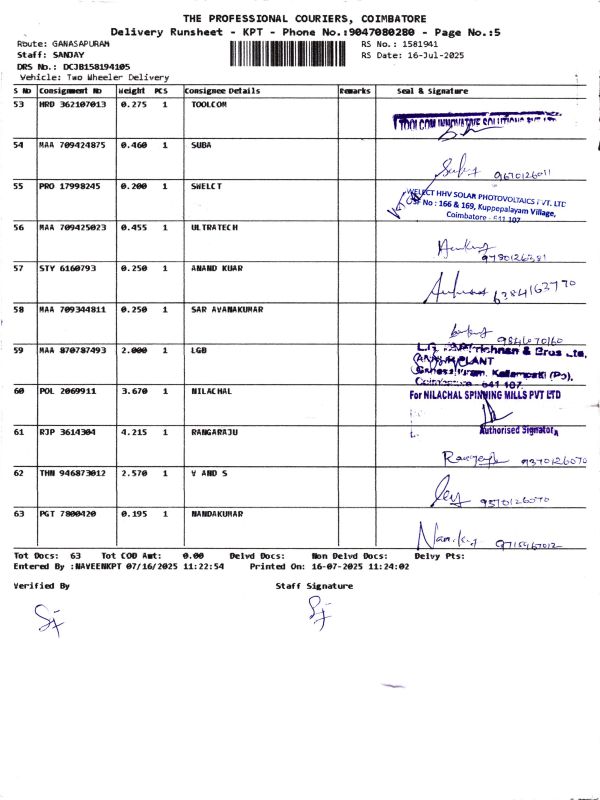 THE PROFESSIONAL COURIERS, COIMBATORE
Delivery Runsheet - KPT - Phone No.:9047080280 - Page No.:5
Route: GANASAPURAM
RS No.: 1581941
Staff: SANJAY
RS Date: 16-Jul-2025
DRS No.: DCJB158194105
Vehicle: Two Wheeler Delivery
S No Consignment No Weight PCS Consignee Details Remarks Seal & Signature
53 HRD 362107013 0.275 1 TOOLCOM
TOOLCOM INNOVATIVE SOLUTIONS PVT LTD
54 MAA 709424875 0.460 1 SUBA
55 PRO 17998245 0.200 1 SWELCT
SWELECT HHV SOLAR PHOTOVOLTAICS PVT. LTD
SF No : 166 & 169, Kuppepalayam Village,
Coimbatore - 641 107
56 MAA 709425023 0.455 1 ULTRATECH
57 STY 6160793 0.250 1 ANAND KUAR
58 MAA 709344811 0.250 1 SAR AVANAKUMAR
59 MAA 870787493 2.000 1 LGB
& Bros Ltd,
PLANT
641 107.
60 POL 2069911 3.670 1 NILACHAL
For NILACHAL SPINNING MILLS PVT LTD
Authorised Signatory
61 RJP 3614304 4.215 1 RANGARAJU
62 THN 946873012 2.570 1 V AND S
63 PGT 7800420 0.195 1 NANDAKUMAR
Tot Docs: 63 Tot COD Amt: 0.00 Delvd Docs: Non Delvd Docs: Delvy Pts:
Entered By :NAVEENKPT 07/16/2025 11:22:54 Printed On: 16-07-2025 11:24:02
Verified By Staff Signature